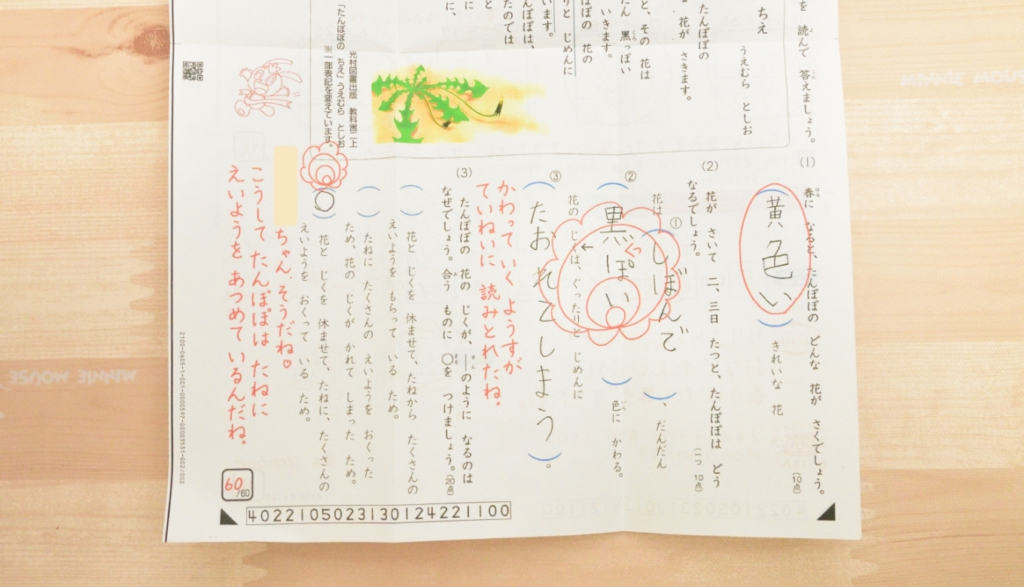 を 読んで 答えましょう。
ちえ
うえむら としお
たんぽぽの
花が さきます。
と、その 花は
いきます。
たん 黒っぽい
ぽぽの 花の
りと じめんに
います。
んぽぽは、
たのでは
と
に
に、
「たんぽぽの ちえ」うえむら としお
光村図書出版 教科書二上
※一部表記を変えています。
(1) 春に なると、たんぽぽの どんな 花が さくでしょう。
(10点)
黄色い
きれいな 花
(2) 花が さいて 二、三日 たつと、たんぽぽは どう
なるでしょう。
(一つ 10点)
①
花は しぼんで 、だんだん
②
黒っぽい 色に かわる。
③
花の じくは、ぐったりと じめんに
たおれてしまう 。
かわって いく ようすが
ていねいに 読みとれたね。
(3) たんぽぽの 花の じくが、──のように なるのは
なぜでしょう。合う ものに ○を つけましょう。(20点)
花と じくを 休ませて、たねから たくさんの
えいようを もらって いる ため。
たねに たくさんの えいようを おくった
ため、花の じくが かれて しまった ため。
○
花と じくを 休ませて、たねに、たくさんの
えいようを おくって いる ため。
ちゃん、そうだね♡
こうして たんぽぽは たねに
えいようを あつめて いるんだね。
60/60
4022105023130124221100
MINNIE MOUSE
MINNIE MOUSE